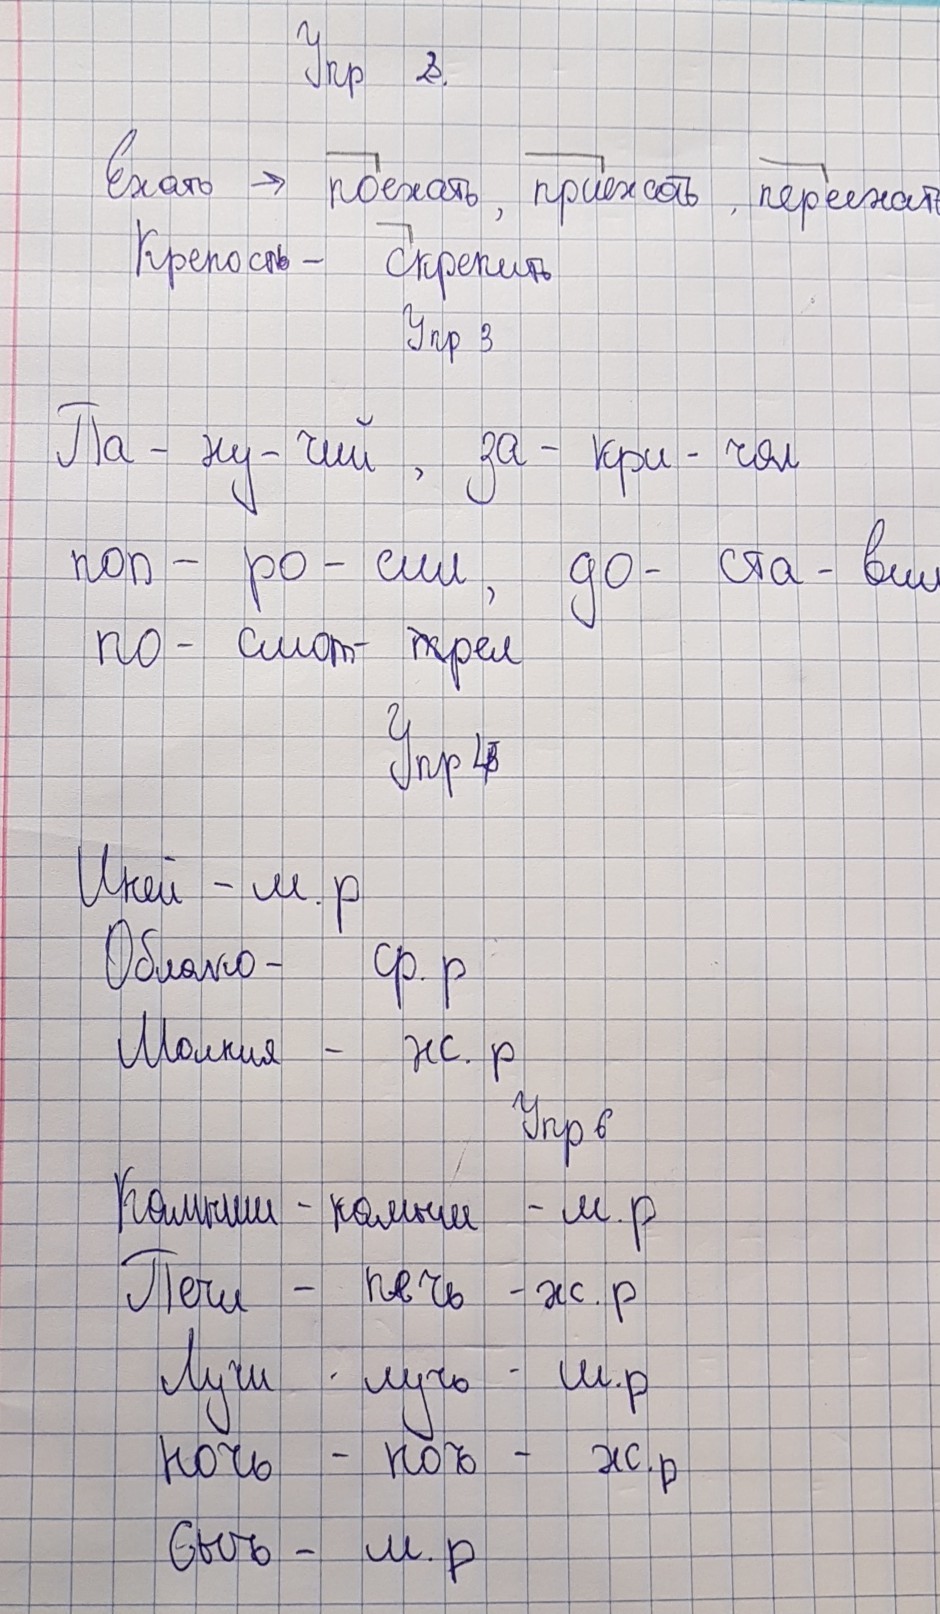 Упр 2.
Ехать → поехать, приехать, переехать
Крепость - скрепить
Упр 3
Па - ху - чий, за - кри - чал
поп - ро - сил, до - ста - вил
по - смот - трел
Упр 4
Иней - м. р
Облако - ср. р
Молния - ж. р
Упр 6
Камыши - камыш - м. р
Печи - печь - ж. р
Лучи - лучь - м. р
ночь - ночь - ж. р
Сычь - м. р